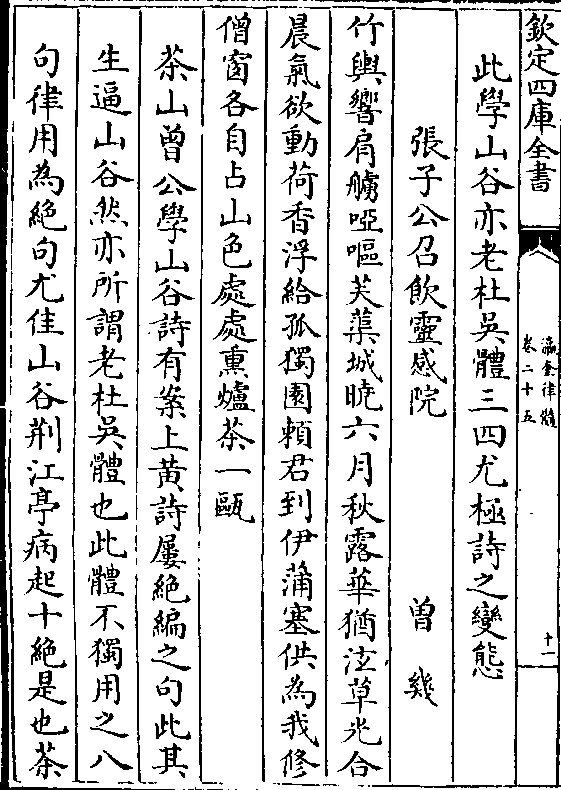 欽定四庫全書
瀛奎律髓
卷二十五
十一
此學山谷亦老杜吳體三四尤極詩之變態
張子公召飲靈感院　曾幾
竹輿響肩艣啞嘔芙蕖城曉六月秋露華猶泫草光合
晨氣欲動荷香浮給孤獨園頼君到伊蒲塞供為我修
僧窗各自占山色處處熏爐茶一甌
茶山曾公學山谷詩有案上黄詩屢絶編之句此其
生逼山谷然亦所謂老杜吳體也此體不獨用之八
句律用為絶句尤佳山谷荆江亭病起十絶是也茶